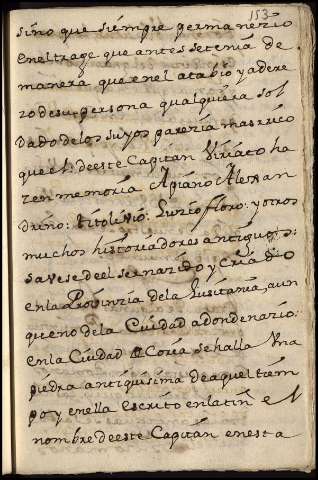 153
sino que siempre permanezio
en el trage que antes se tenia de
manera que en el atabio y adere
zo de su persona qualquiera sol
dado de los suyos parezia mas rico
que el: de este Capitan Viriato ha
zen memoria Apiano Alexan
drino: titolivio: Luzio floro: y otros
muchos historiadores antiguos:
savese del ser nazido y criado
en la Provinzia de la Lusitania, aun
que no de la Ciudad adonde nazio:
en la Ciudad de Coria se halla Una
piedra antiquisima de aquel tiem
po y en ella Escrito en latin el
nombre de este Capitan en esta